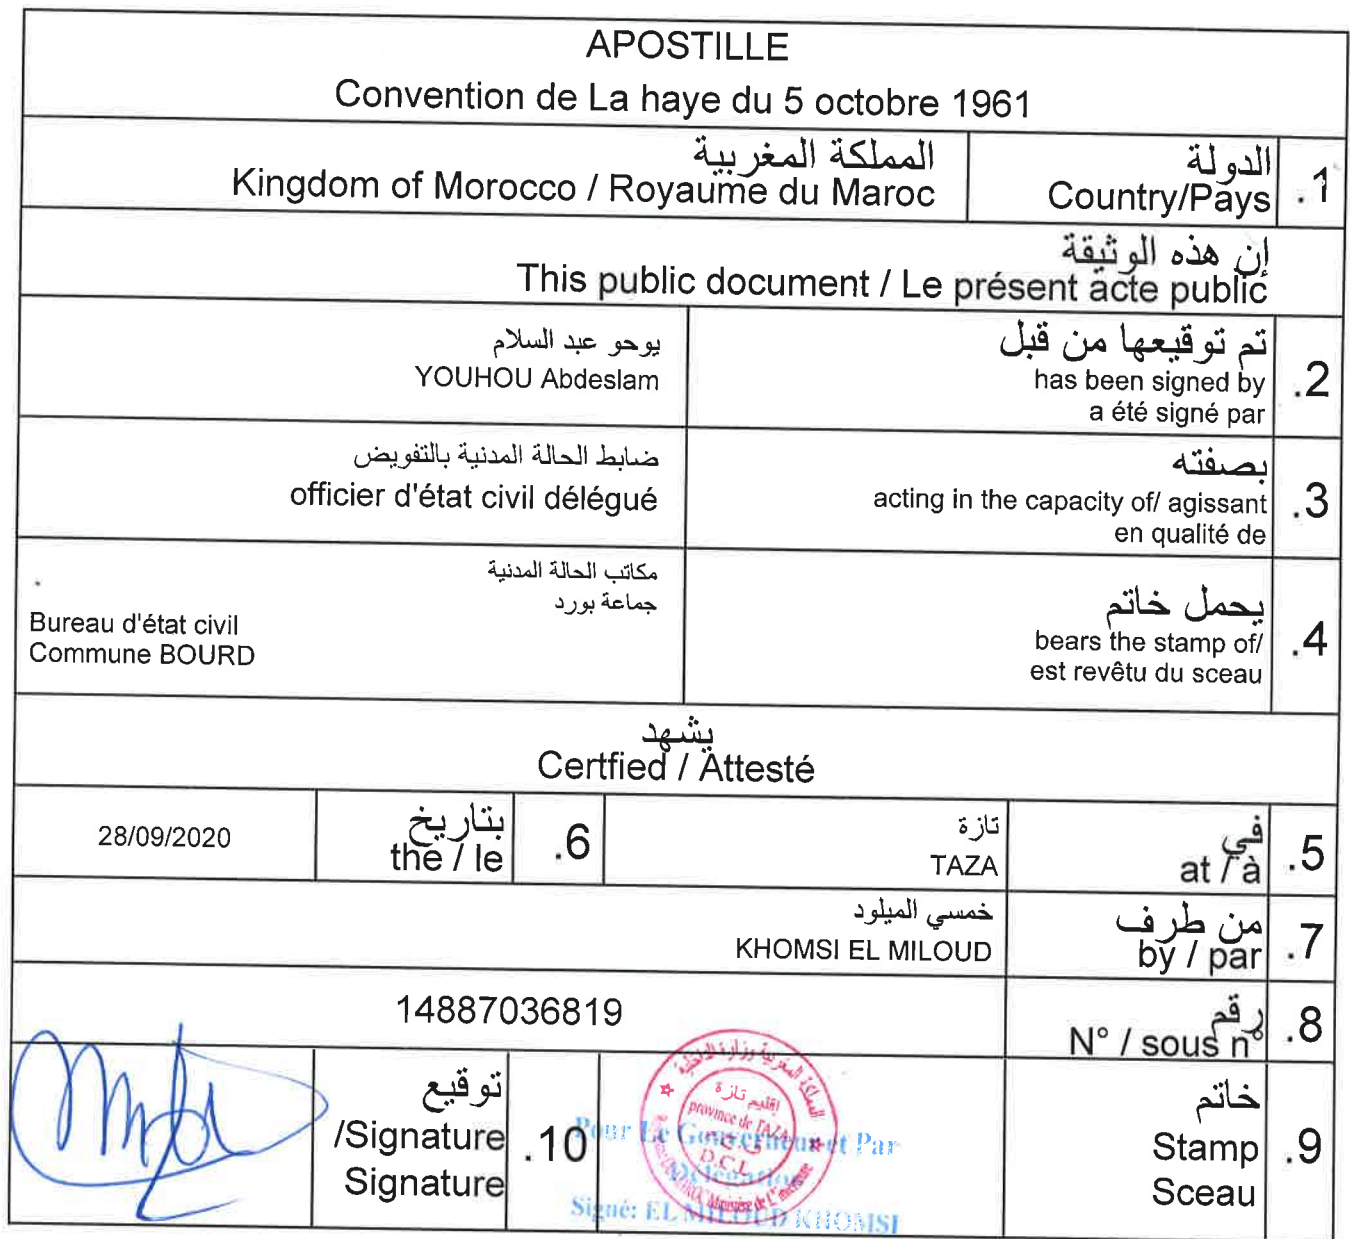 APOSTILLE
Convention de La haye du 5 octobre 1961
.1
الدولة
Country/Pays
المملكة المغربية
Kingdom of Morocco / Royaume du Maroc
إن هذه الوثيقة
This public document / Le présent acte public
.2
تم توقيعها من قبل
has been signed by
a été signé par
يوحو عبد السلام
YOUHOU Abdeslam
.3
بصفته
acting in the capacity of/ agissant
en qualité de
ضابط الحالة المدنية بالتفويض
officier d'état civil délégué
.4
يحمل خاتم
bears the stamp of/
est revêtu du sceau
مكاتب الحالة المدنية
جماعة بورد
Bureau d'état civil
Commune BOURD
يشهد
Certfied / Attesté
.5
في
at / à
تازة
TAZA
.6
بتاريخ
the / le
28/09/2020
.7
من طرف
by / par
خمسي الميلود
KHOMSI EL MILOUD
.8
رقم
N° / sous n°
14887036819
.9
خاتم
Stamp
Sceau
المملكة المغربية وزارة الداخلية
إقليم تازة
province de TAZA
D.C.L
Ministère de L'intérieur
Pour Le Gouverneur et Par
Délégation
Signé: EL MILOUD KHOMSI
.10
توقيع
/Signature
Signature